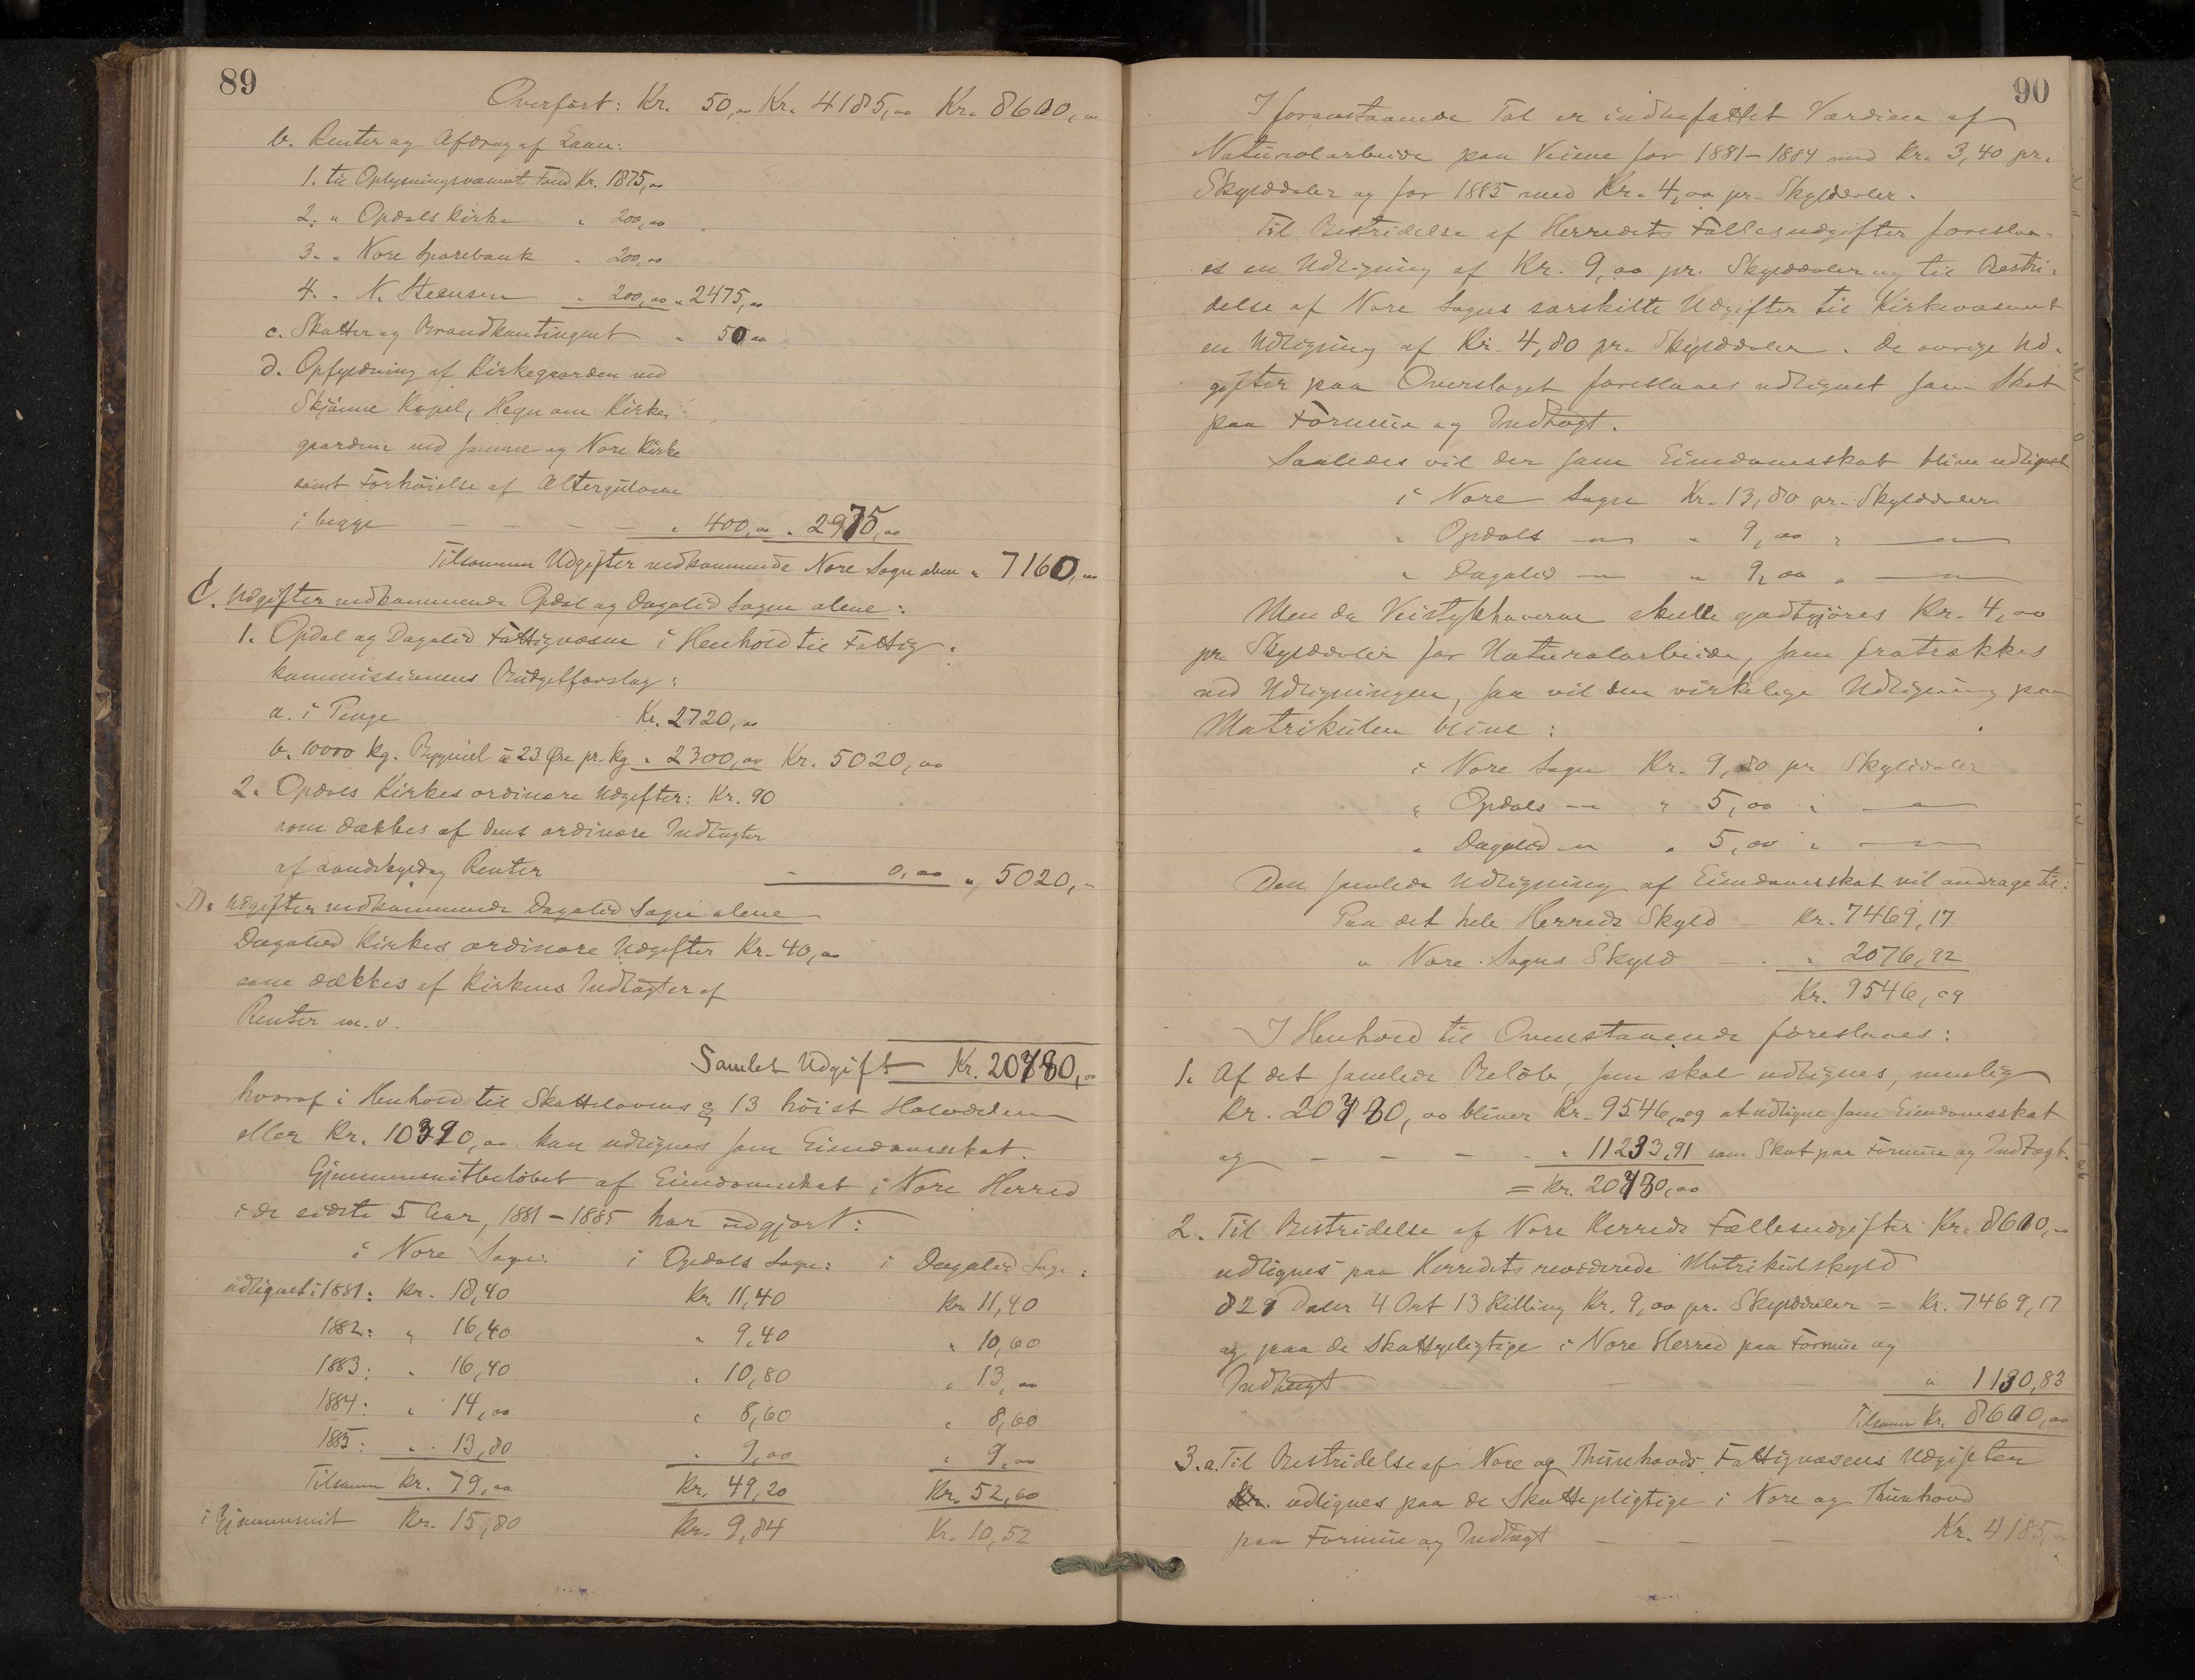 89
Overført: Kr. 50,00 Kr. 4185,00 Kr. 8600,00
b. Renter og Afdrag af Laan:
1. til Oplysningsvæsenets Fond Kr. 1875,00
2. " Opdals Kirke " 200,00
3. " Nore Sparebank " 200,00
4. " N. Steensen " 200,00 " 2475,00
c. Skatter og Brandkontingent " 50,00
d. Opfyldning af Kirkegaarden ved
Skjønne Kapel, Hegn om Kirke-
gaardene ved samme og Nore Kirke
samt Forhøielse af Altergulvene
i begge — — — — " 400,00 " 2975,00
Tilsammen Udgifter vedkommende Nore Sogn alene " 7160,00
C. Udgifter vedkommende Opdal og Dagalid Sogne alene:
1. Opdal og Dagalid Fattigvæsen i Henhold til Fattig-
kommissionens Budgetforslag:
a. i Penge Kr. 2720,00
b. 10000 kg. Bygmel à 23 Øre pr. kg " 2300,00 Kr. 5020,00
2. Opdals Kirkes ordinære Udgifter: Kr. 90
som dækkes af dens ordinære Indtægter
af Landskyld og Renter " 0,00 " 5020,-
D. Udgifter vedkommende Dagalid Sogn alene
Dagalid Kirkes ordinære Udgifter Kr. 40,00
som dækkes af Kirkens Indtægter af
Renter m.v.
Samlet Udgift Kr. 20780,00
hvoraf i Henhold til Skattelovens § 13 høist Halvdelen
eller Kr. 10390,00 kan udlignes som Eiendomsskat.
Gjennemsnitbeløbet af Eiendomsskat i Nore Herred
i de sidste 5 Aar, 1881-1885 har udgjort:
i Nore Sogn: i Opdals Sogn: i Dagalid Sogn:
udlignet i 1881: Kr. 18,40 Kr. 11,40 Kr. 11,40
1882: " 16,40 " 9,40 " 10,60
1883: " 16,40 " 10,80 " 13,00
1884: " 14,00 " 8,60 " 8,60
1885: " 13,80 " 9,00 " 9,00
Tilsammen Kr. 79,00 Kr. 49,20 Kr. 52,60
i Gjennemsnit Kr. 15,80 Kr. 9,84 Kr. 10,52
90
I foranstaaende Tal er indbefattet Værdien af
Naturalarbeide paa Veiene for 1881-1884 med Kr. 3,40 pr.
Skylddaler og for 1885 med Kr. 4,00 pr. Skylddaler.
Til Bestridelse af Herredets Fællesudgifter foreslaa-
es en Udligning af Kr. 9,00 pr. Skylddaler og til Bestri-
delse af Nore Sogns særskilte Udgifter til Kirkevæsenet
en Udligning af Kr. 4,80 pr. Skylddaler. De øvrige Ud-
gifter paa Overslaget foreslaaes udlignet som Skat
paa Formue og Indtægt.
Saaledes vil der som Eiendomsskat blive udlignet
i Nore Sogn Kr. 13,80 pr. Skylddaler
" Opdals — " 9,00 " —
" Dagalid — " 9,00 " —
Men da Veistykhaverne skulle godtgjøres Kr. 4,00
pr. Skylddaler for Naturalarbeide, som fratrækkes
ved Udligningen, saa vil den virkelige Udligning paa
Matrikulen blive:
i Nore Sogn Kr. 9,80 pr. Skylddaler
" Opdals — " 5,00 " —
" Dagalid — " 5,00 " —
Den samlede Udligning af Eiendomsskat vil andrage til:
Paa det hele Herreds Skyld — Kr. 7469,17
" Nore Sogns Skyld — " 2076,92
Kr. 9546,09
I Henhold til Ovenstaaende foreslaaes:
1. Af det samlede Beløb, som skal udlignes, nemlig
Kr. 20780,00 bliver Kr. 9546,09 at udligne som Eiendomsskat
og — — — " 11233,91 som Skat paa Formue og Indtægt.
= Kr. 20780,00
2. Til Bestridelse af Nore Herreds Fællesudgifter Kr. 8600,00
udlignes paa Herredets reviderede Matrikulskyld
829 Daler 4 Ort 13 Skilling Kr. 9,00 pr. Skylddaler = Kr. 7469,17
og paa de Skattepligtige i Nore Herred paa Formue og
Indtægt — — — " 1130,83
Tilsamm. Kr. 8600,00
3. a. Til Bestridelse af Nore og Thunhovds Fattigvæsens Udgifter
Kr. udlignes paa de Skattepligtige i Nore og Thunhovd
paa Formue og Indtægt — — — Kr. 4185,00